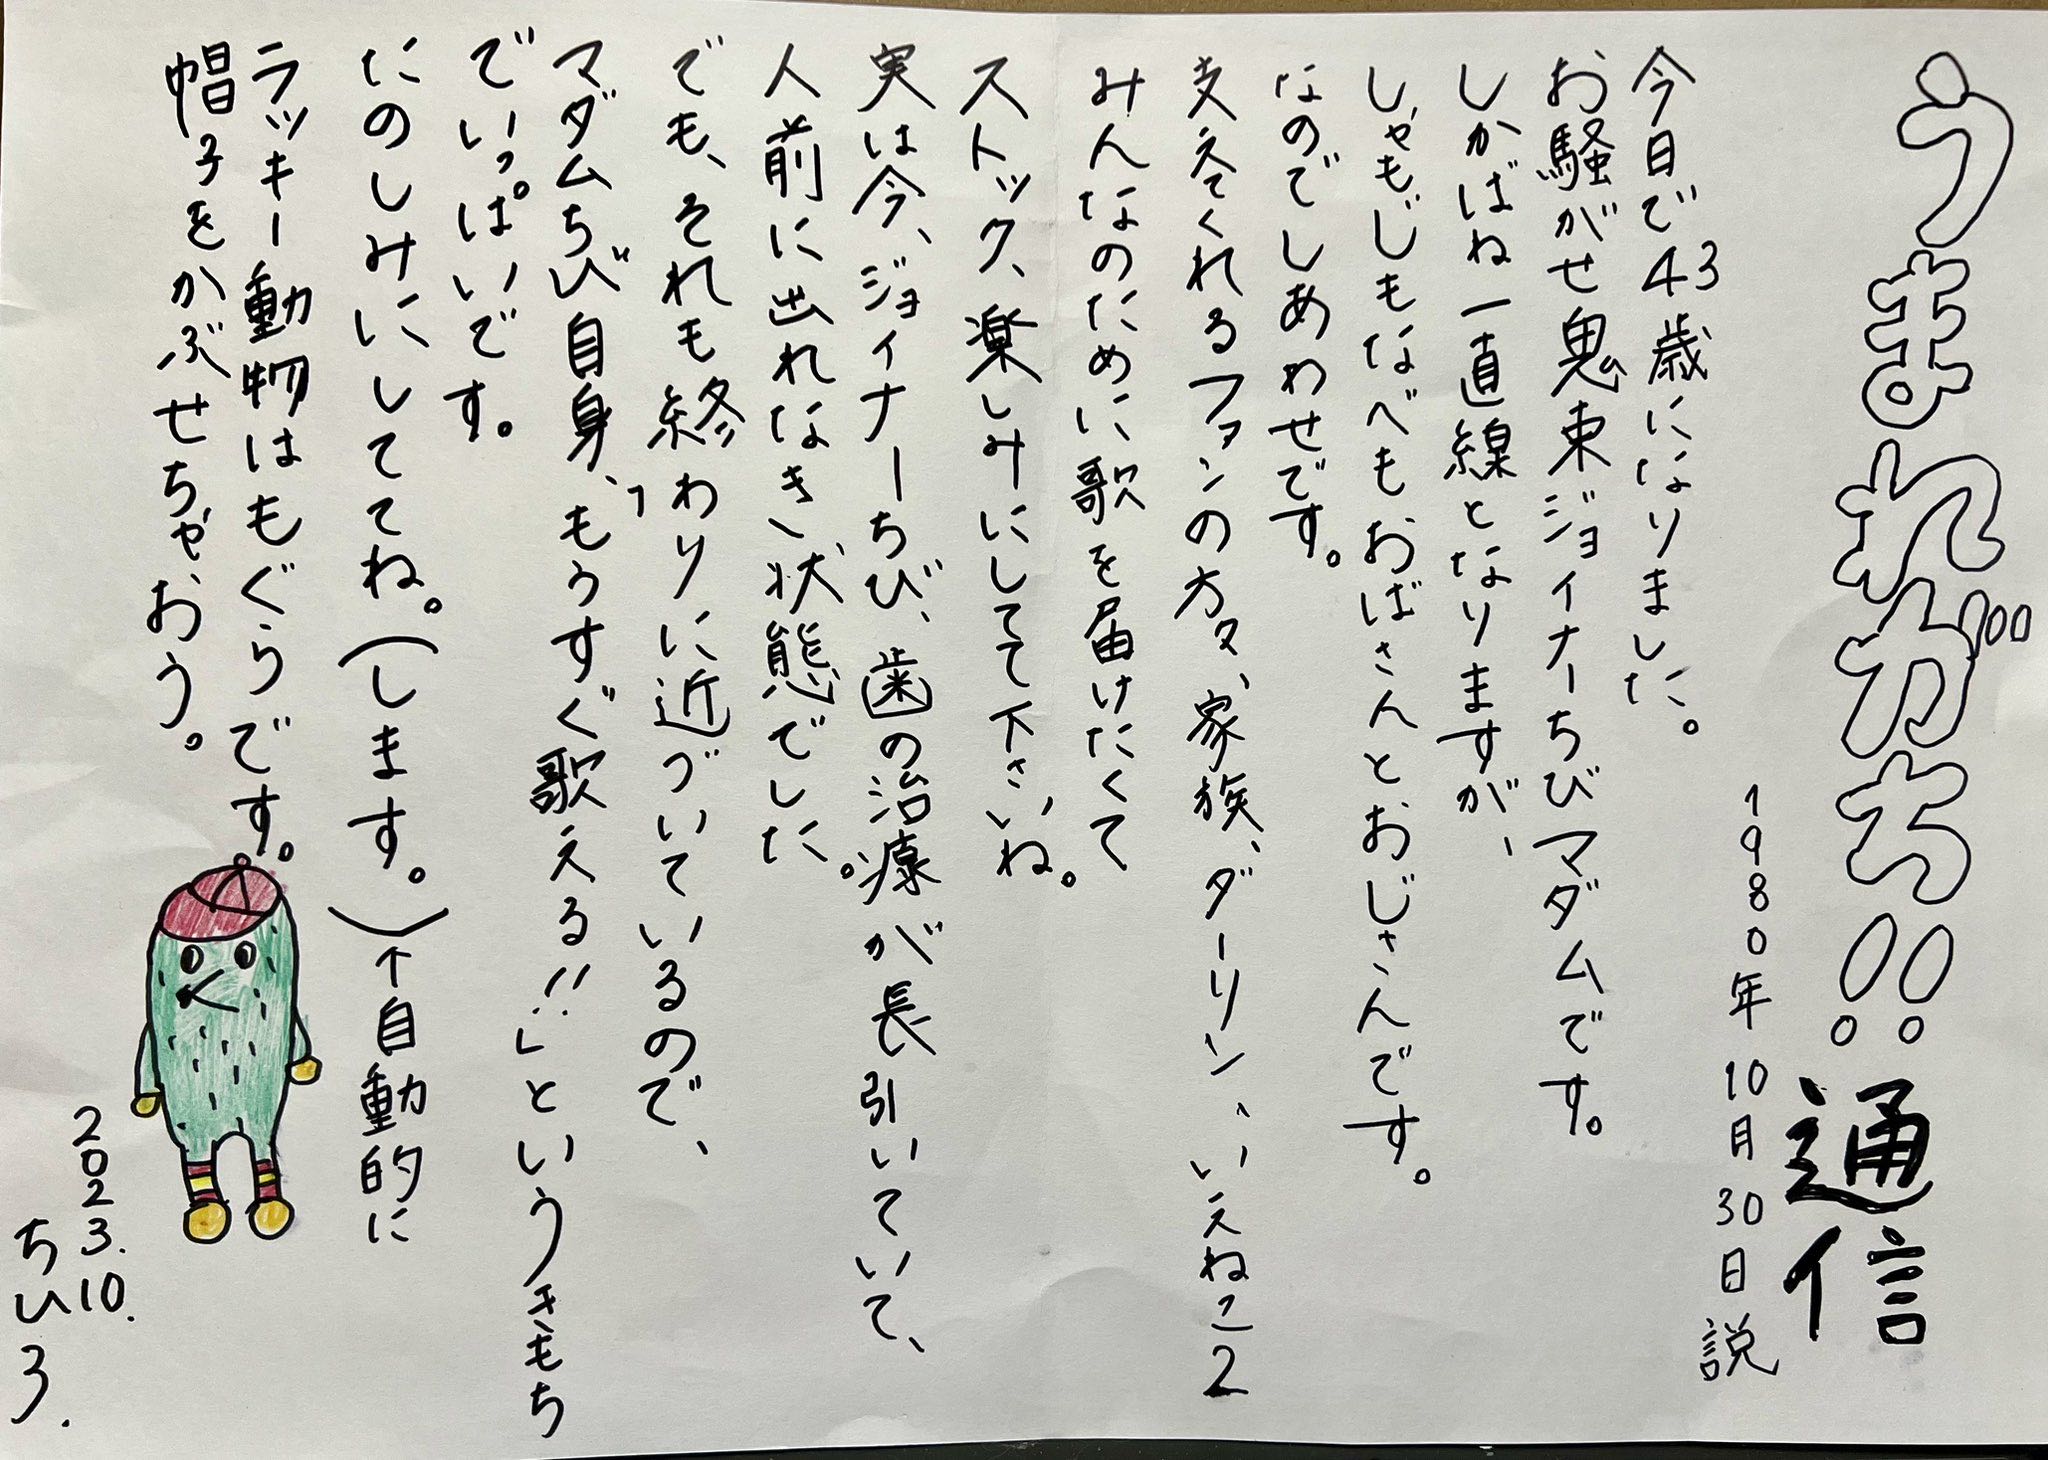 うまれがち!!通信
1980年10月30日説
今日で43歳になりました。
お騒がせ鬼束ジョイナーちびマダムです。
しかばね一直線となりますが、
しゃもじもなべもおばさんとおじさんです。
なのでしあわせです。
支えてくれるファンの方々、家族、ダーリン、いえねこ2
みんなのために歌を届けたくて
ストック、楽しみにしてて下さいね。
実は今、ジョイナーちび、歯の治療が長引いていて、
人前に出れなき状態でした。
でも、それも終わりに近づいているので、
マダムちび自身、「もうすぐ歌える!!」というきもち
でいっぱいです。
たのしみにしててね。(します。)↑自動的に
ラッキー動物はもぐらです。
帽子をかぶせちゃおう。
2023.10.
ちひろ.